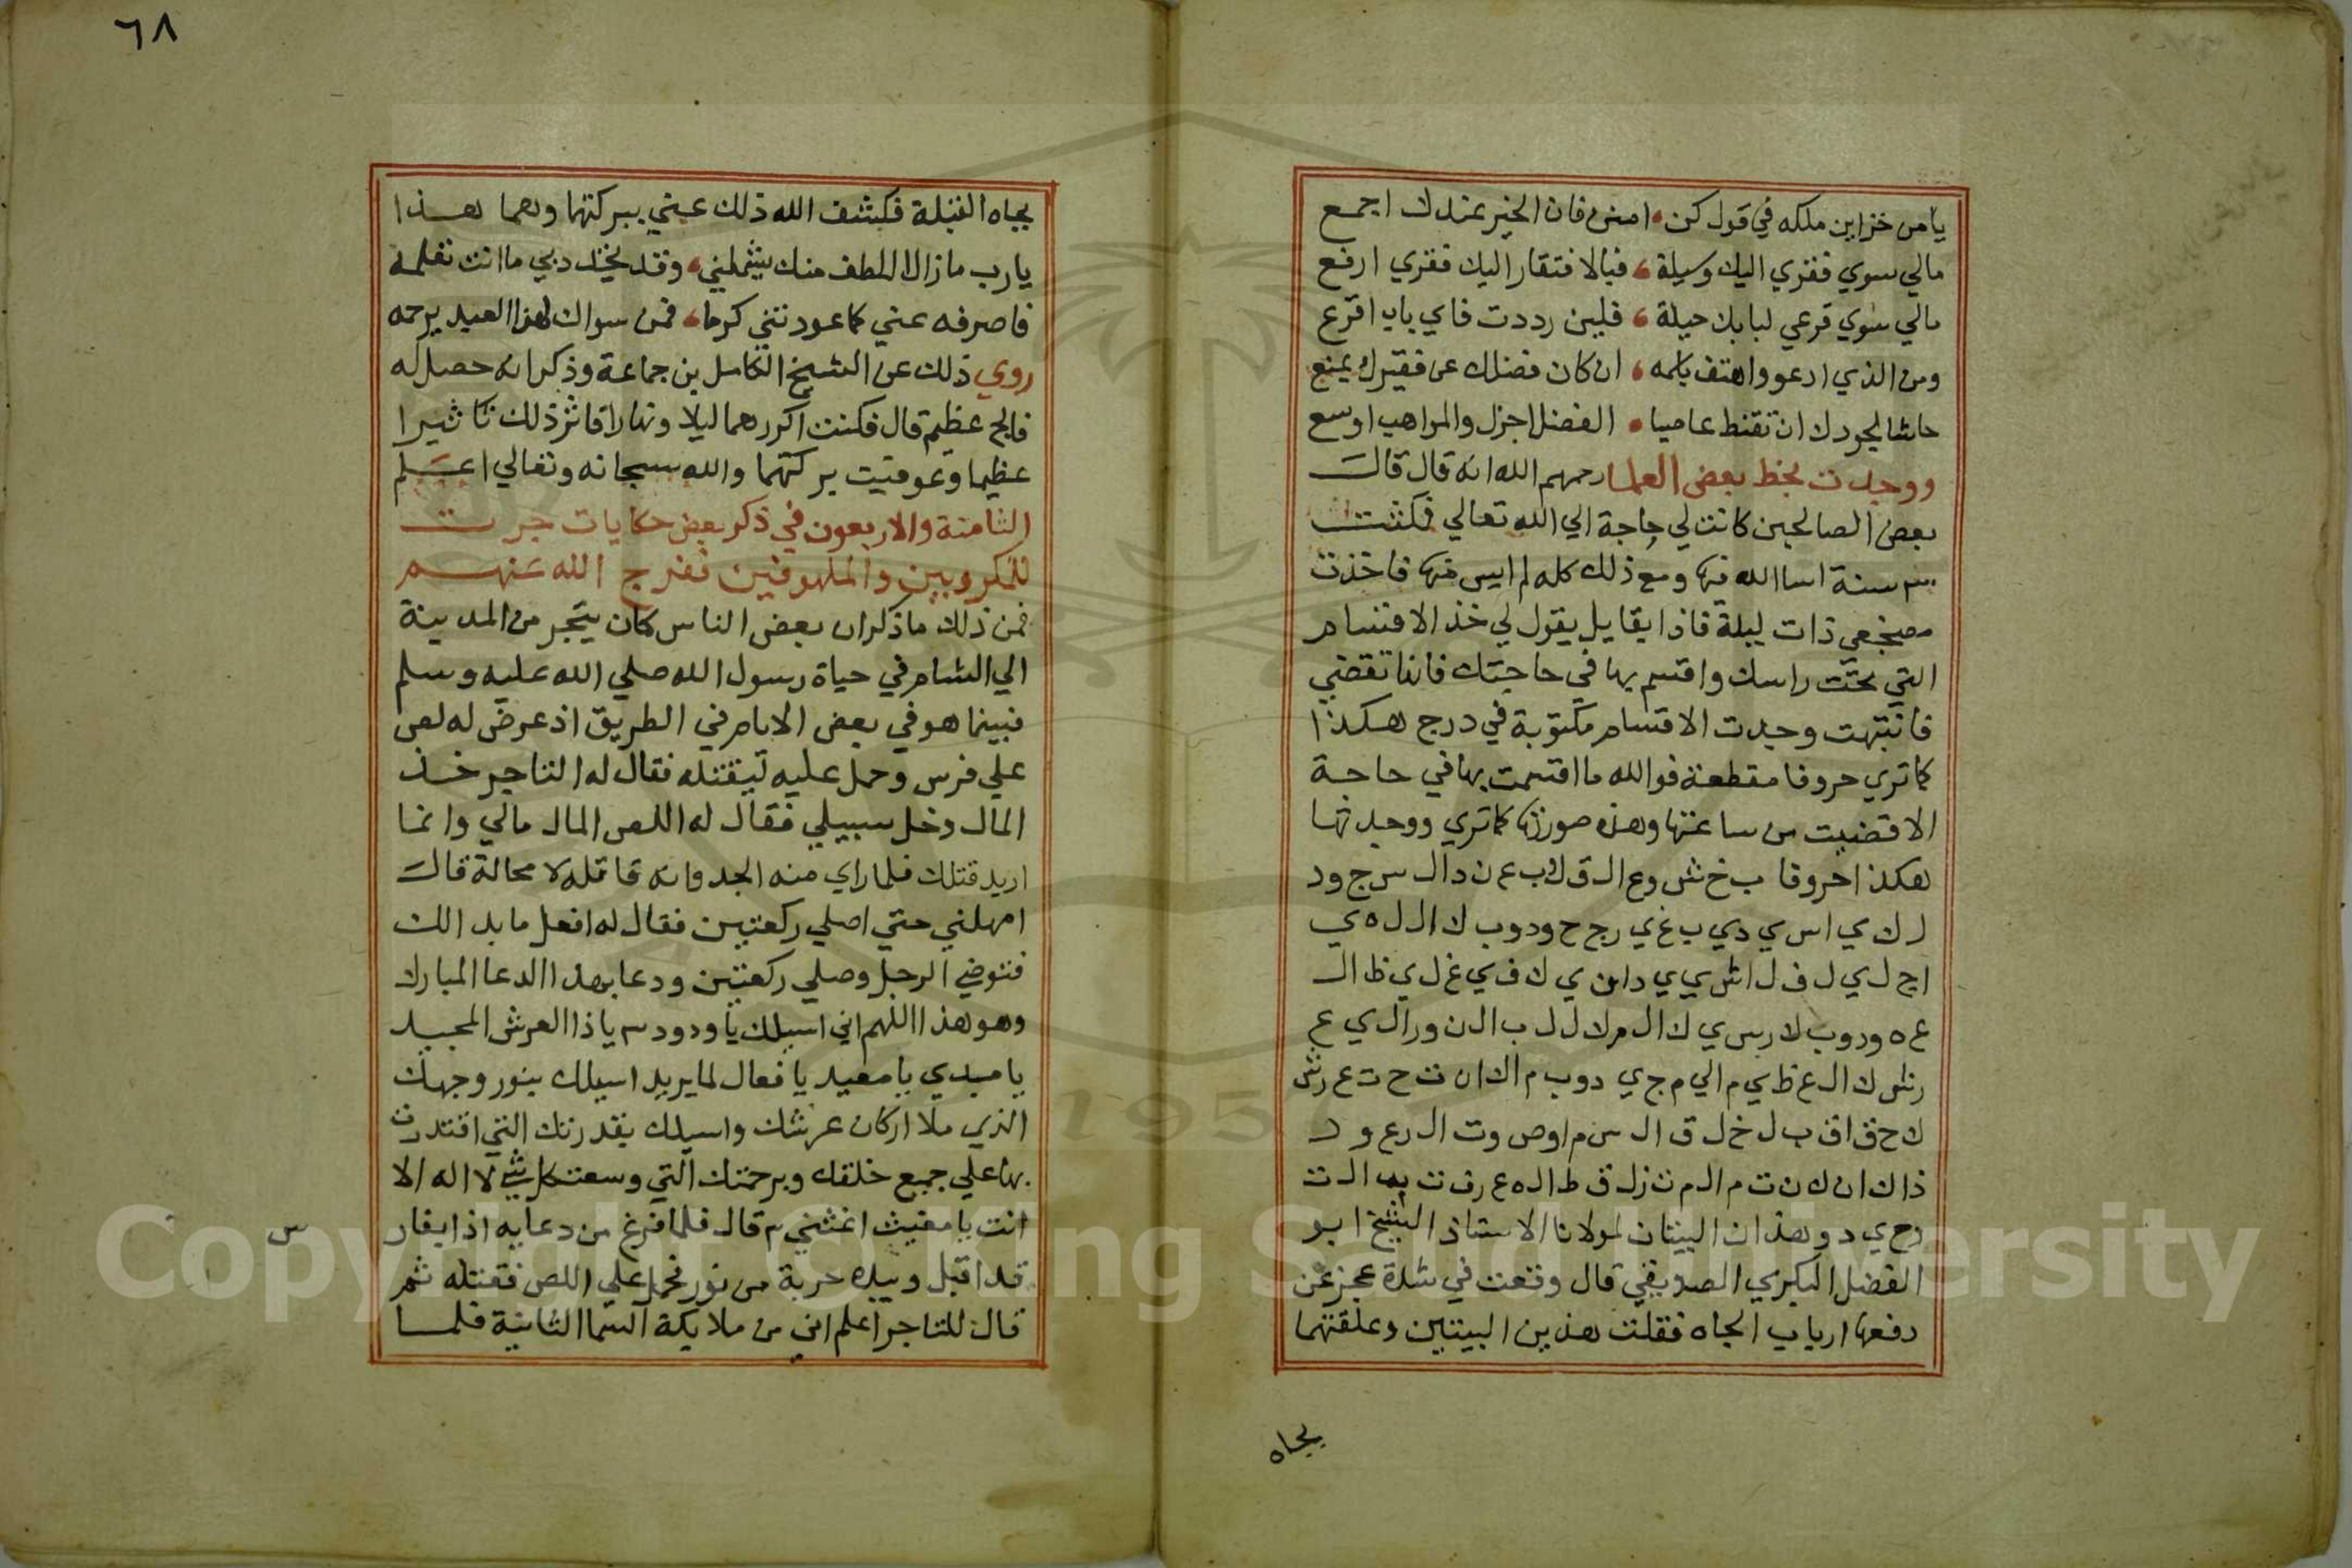 يا من خزاين ملكه في قول كن امنن فان الخير عندك اجمع
مالي سوي فقري اليك وسيلة فبالافتقار اليك فقري ارفع
مالي سوي قرعي لبابك حيلة فلين رددت فاي باب اقرع
ومن الذي ادعو واهتف باسمه ان كان فضلك عن فقيرك يمنع
حاشا لجودك ان تقنط عاصيا الفضل اجزل والمواهب اوسع
ووجدت بخط بعض العلما رحمهم الله انه قال قال
بعض الصالحين كانت لي حاجة الي الله تعالي فكثت
سنة اسا الله فيها ومع ذلك كله لم ايس منها فاخذت
مضجعي ذات ليلة فاذا بقايل يقول لي خذ الاقسام
التي تحت راسك واقسم بها في حاجتك فانها تقضي
فانتبهت وجدت الاقسام مكتوبة في درج هكذا
كما تري حروفا مقطعة فوالله ما اقسمت بها في حاجة
الا قضيت من ساعتها وهذه صورتها كما تري ووجدتها
هكذا حروفا ب خ ش وع ال ق ل وب ع ن د ال س ج ود
ل ك ي ا س ي دي ب غ ي ر ج ح ودوب ك ال ل ه ي
ا ج ل ي ل ف ل ا ش ي ي دا ن ي ك ف ي غ ل ي ظ ال
ع ه ودوب ك ر س ي ك ال م ك ل ل ب ال ن ور ال ي ع
ر ش ك ال ع ظ ي م ال م ج ي دوب م ا ك ا ن ت ح ت ع ر ش
ك ح ق ا ق ب ل خ ل ق ال س م ا و ص وت ال رع ود
ذا ك ا ن ك ن ت م ال م ت زل ق ط ال ه ع رف ت ب ال ت
وح ي د وهذان البيتان لمولانا الاستاذ الشيخ ابو
الفضل البكري الصديقي قال وقعت في شدة عجز عن
دفعها ارباب الجاه فقلت هذين البيتين وعلقتهما
بجاه
٦٨
بجاه القبلة فكشف الله ذلك عني ببركتها وهما هذا
يارب ما زال اللطف منك يشملني وقد تجدد بي ما انت تعلمه
فاصرفه عني كما عودتني كرما فمن سواك لهذا العبد يرحمه
روي ذلك عن الشيخ الكامل بن جماعة وذكر انه حصل له
فالج عظيم قال فكنت اكررهما ليلا ونهارا فاثر ذلك تاثيرا
عظيما وعوفيت ببركتهما والله سبحانه وتعالي اعلم
الثامنة والاربعون في ذكر بعض حكايات جرت
للمكروبين والملهوفين ففرج الله عنهم
فمن ذلك ما ذكر ان بعض الناس كان يتجر من المدينة
الي الشام في حياة رسول الله صلي الله عليه وسلم
فبينما هو في بعض الايام في الطريق اذ عرض له لص
علي فرس وحمل عليه ليقتله فقال له التاجر خذ
المال وخل سبيلي فقال له اللص المال مالي وانما
اريد قتلك فلما راي منه الجد وانه قاتله لا محالة قال
امهلني حتي اصلي ركعتين فقال له افعل ما بدالك
فتوضي الرجل وصلي ركعتين ودعا بهذا الدعا المبارك
وهو هذا اللهم اني اسيلك يا ودود ٣ يا ذا العرش المجيد
يا مبدي يا معيد يا فعال لما يريد اسيلك بنور وجهك
الذي ملا اركان عرشك واسيلك بقدرتك التي اقتدرت
بها علي جميع خلقك وبرحمتك التي وسعت كل شي لا اله الا
انت يا مغيث اغثني ٣ قال فلما فرغ من دعايه اذا بفار
س
قد اقبل وبيده حربة من نور فحمل علي اللص فقتله ثم
قال للتاجر اعلم اني من ملايكة السما الثانية فلما
Copyright © King Saud University
1957